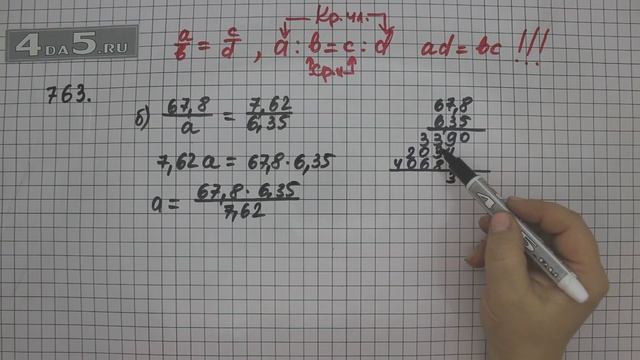 4DA5.RU
Кр.чл.
a/b = c/d , a : b = c : d ad = bc !!!
Ср.ч
763.
б) 67,8/a = 7,62/6,35
7,62 a = 67,8 · 6,35
a = 67,8 · 6,35/7,62
67,8
6,35
3390
4068
3